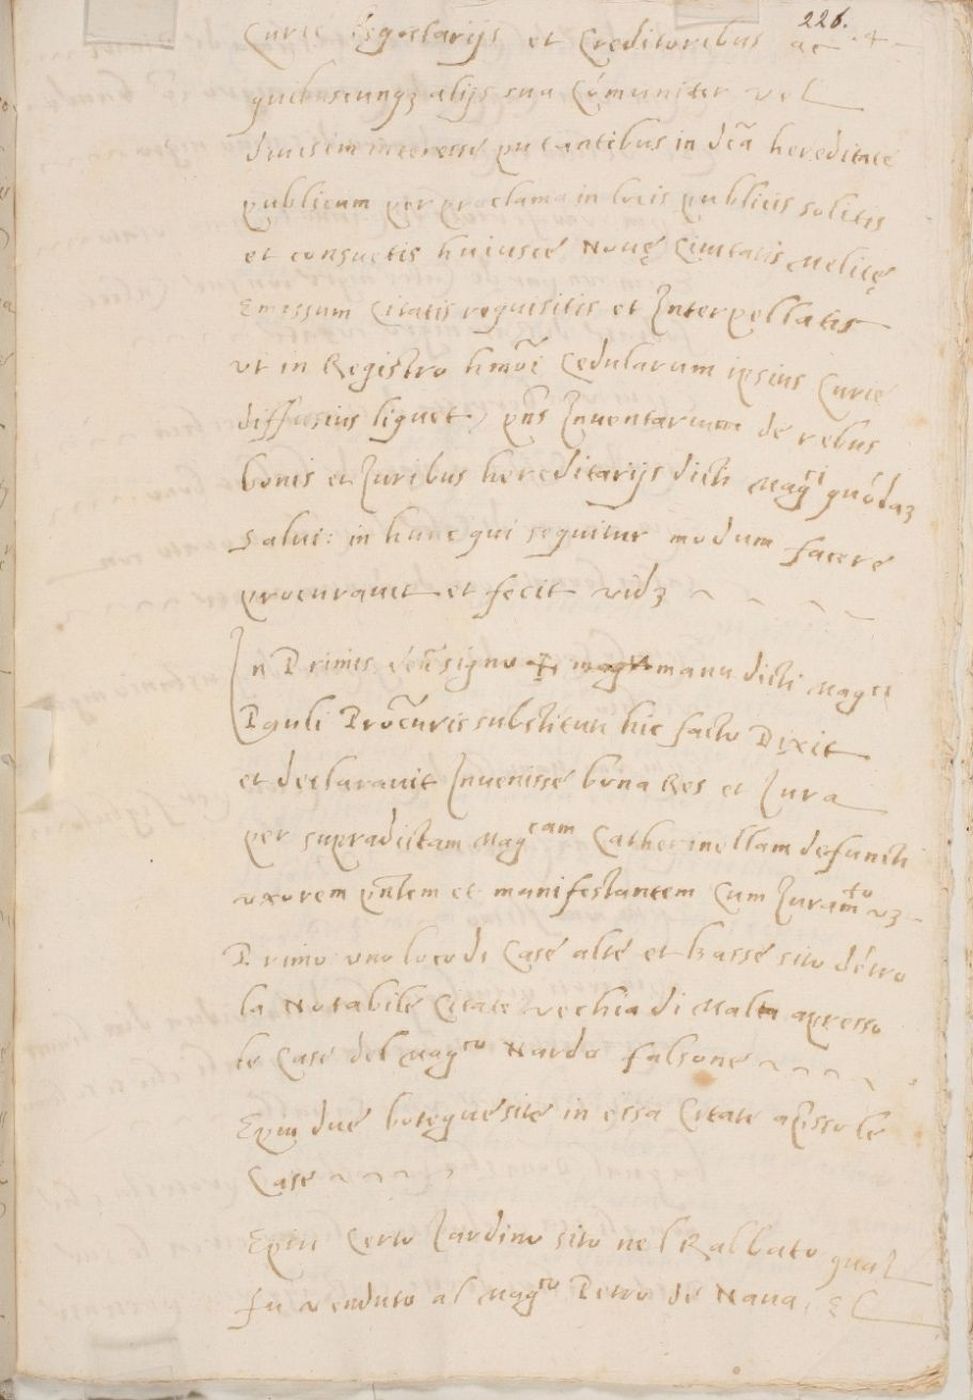 226.
Curie et Creditoribus ac
quibuscunqz alijs sua Cõmuniter vel
diuisim interesse putantibus in dcã hereditate
publicum per proclama in locis publicis solitis
et consuetis huiusce Nouę Ciuitatis Melitę
Emissum Citatis requisitis et Interpellatis
vt in Registro hmõi Cedularum ipsius Curie
diffusius liquet, pñs Inuentarium de rebus
bonis et Iuribus hereditarijs dicti Magci quõdaz
Salui: in hunc qui sequitur modum facere
procurauit et fecit vidz
In Primis signo manu dicti Magci
Pauli Procũris substituti hic facto Dixit
et declarauit Inuenisse bona Res et Iura
per supradictam Magcam Catherinellam defuncti
vxorem pñtem et manifestantem Cum Iuramto vz
Primo vno loco di Case alte et basse sito détro
la Notabile Citate vechia di Malta apresso
le Case del Magco Nardo falsone
Epiu due boteque site in essa Citate apsso le
Case
Epiu Certo Iardino sito nel Rabbato qual
fu venduto al Magco Petro de Naua, El